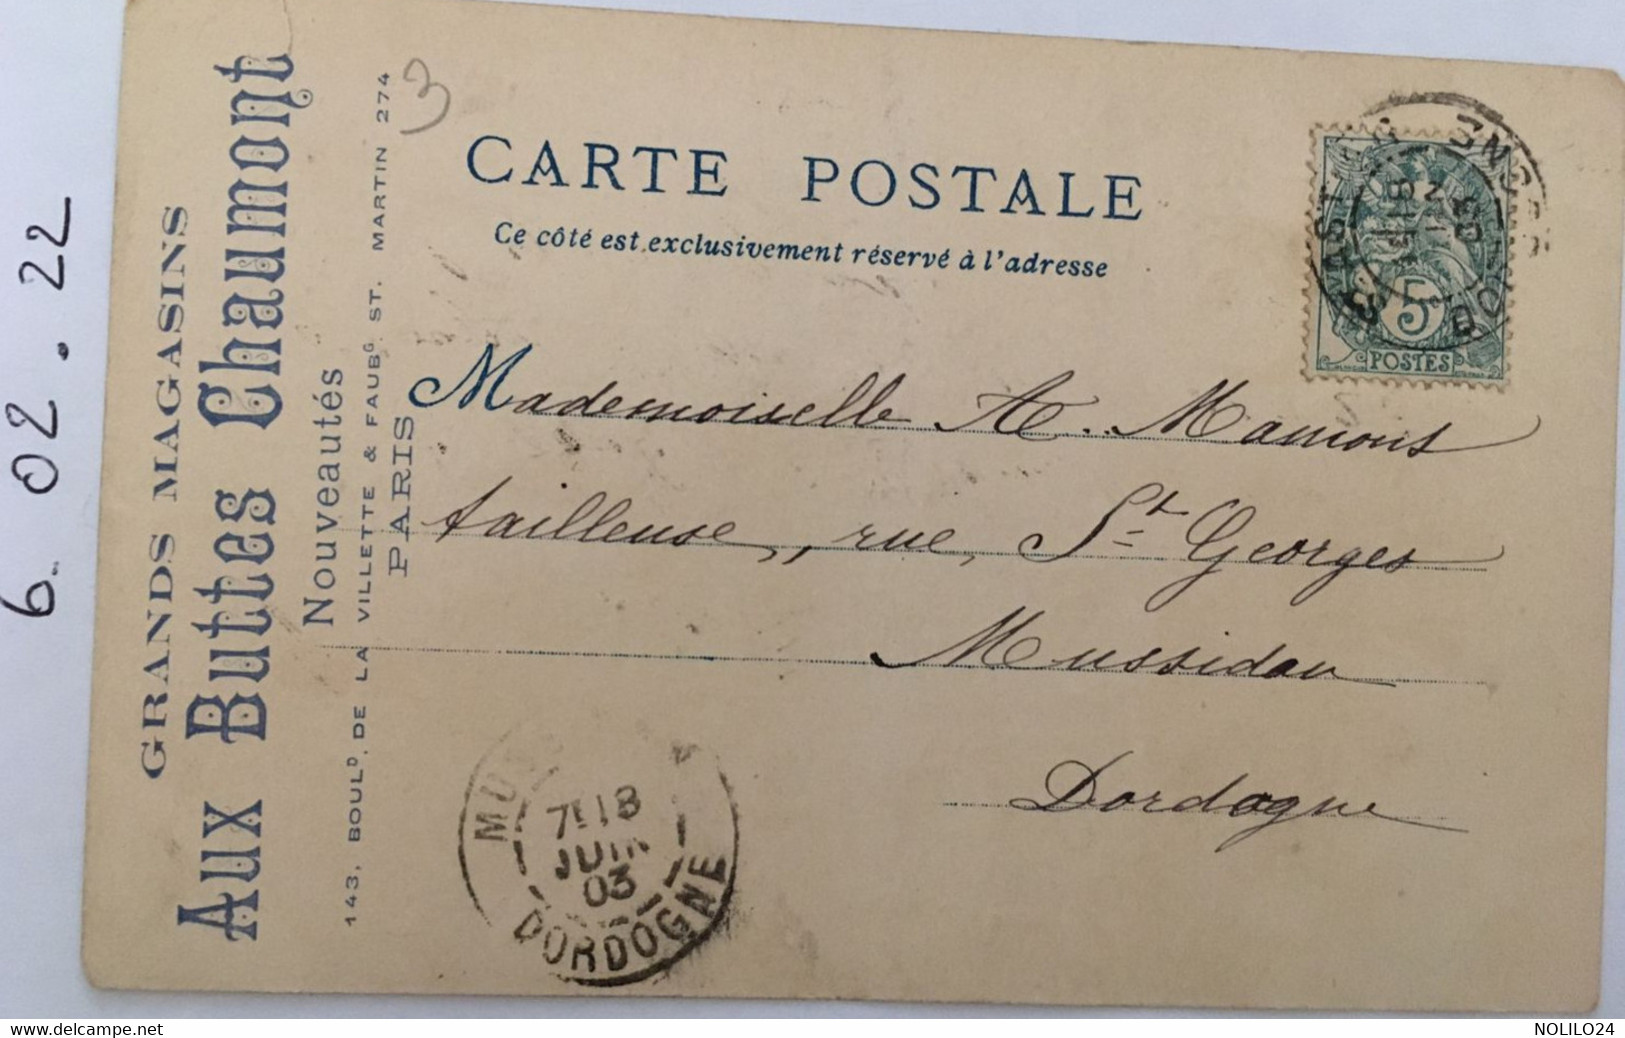 6.02.22
GRANDS MAGASINS
Aux Buttes Chaumont
Nouveautés
143, BOULD. DE LA VILLETTE & FAUBG. ST. MARTIN 274
PARIS
3
CARTE POSTALE
Ce côté est exclusivement réservé à l'adresse
5
POSTES
Mademoiselle A. Mamons
tailleuse, rue, St Georges
Mussidan
Dordogne
7E 18
JUIN
03
DORDOGNE
NOLILO24